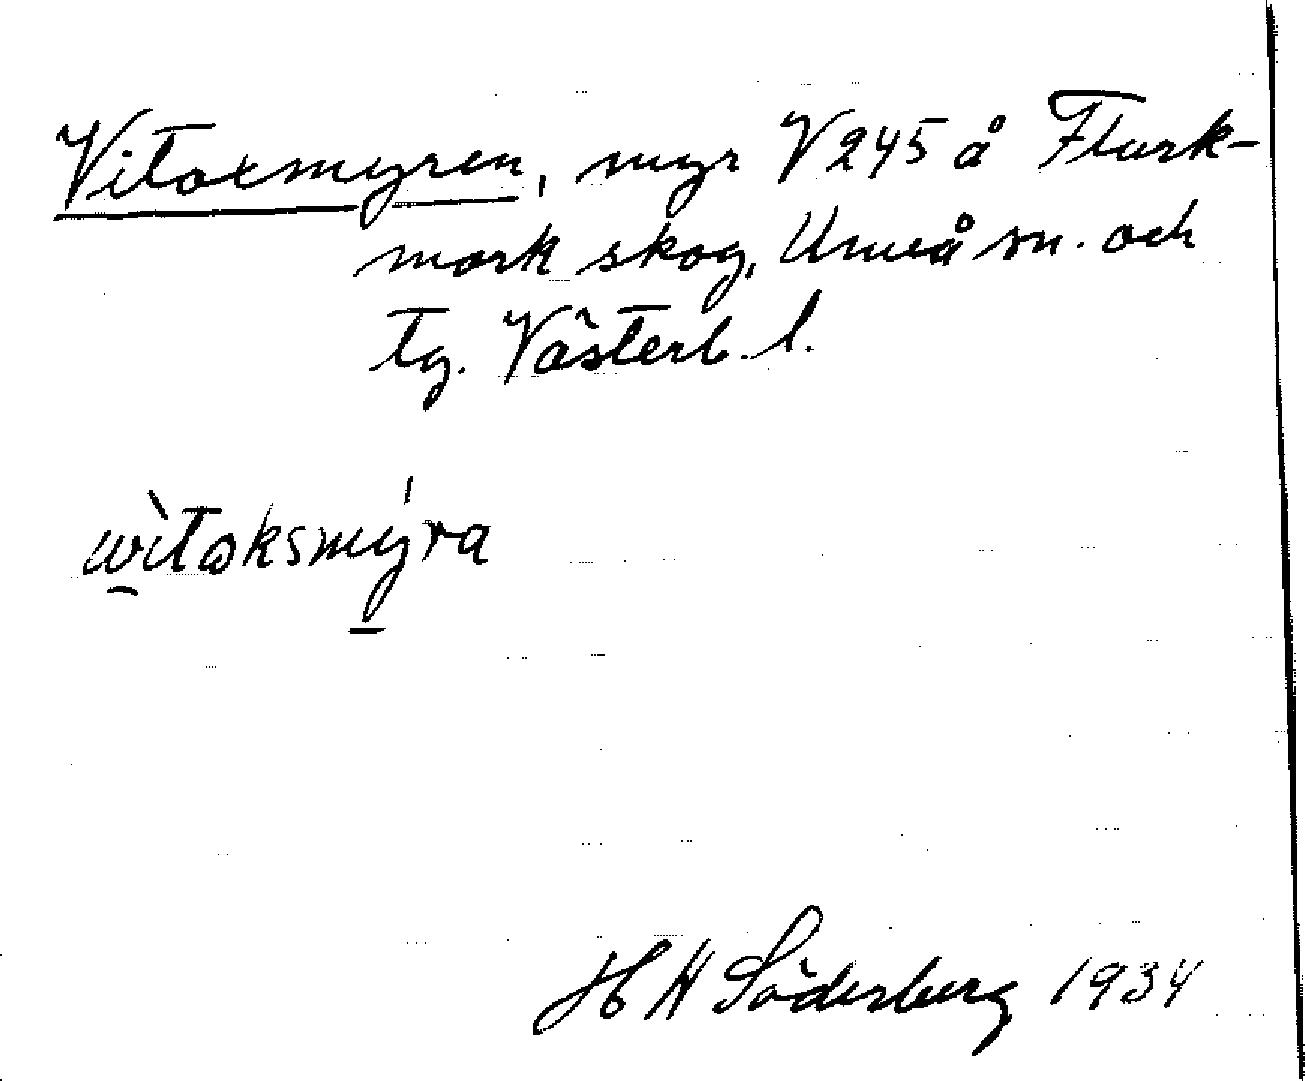 Vitoxmyren, myr V245 å Flurk-
mark skog, Umeå sn. och
tg. Västerb. l.
wìtoksmýra
H H Söderberg 1934